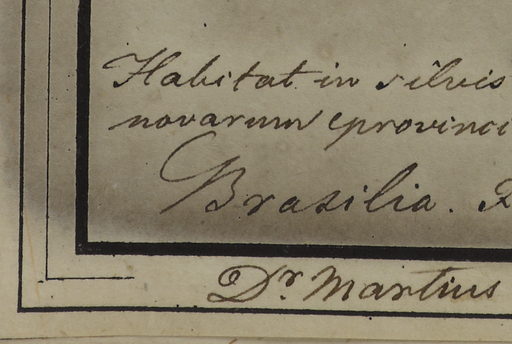 Habitat in silvis
novarum provinci
Brasilia.
Dr. Martius